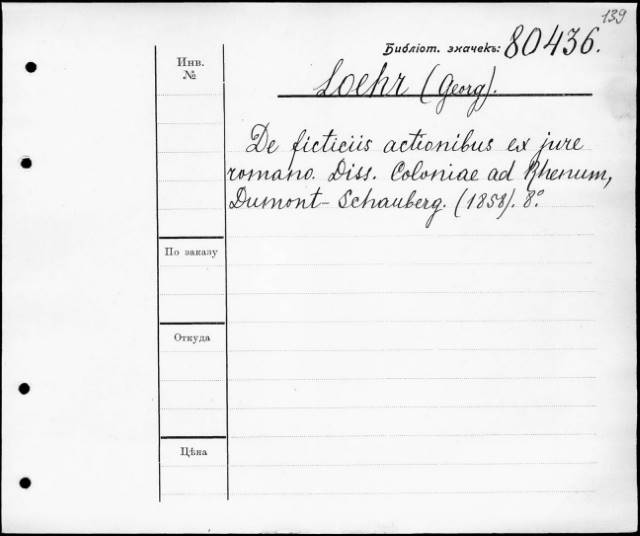 139
Библіот. значекъ: 80436.
Инв.
№
Loehr (Georg).
De ficticiis actionibus ex jure
romano. Diss. Coloniae ad Rhenum,
Dumont-Schauberg. (1858). 8°.
По заказу
Откуда
Цѣна